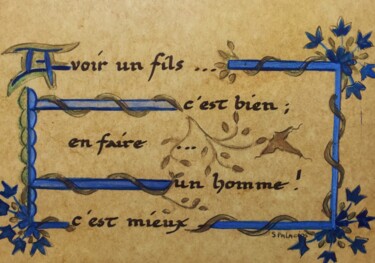 Avoir un fils ...
c'est bien ;
en faire ...
un homme !
c'est mieux